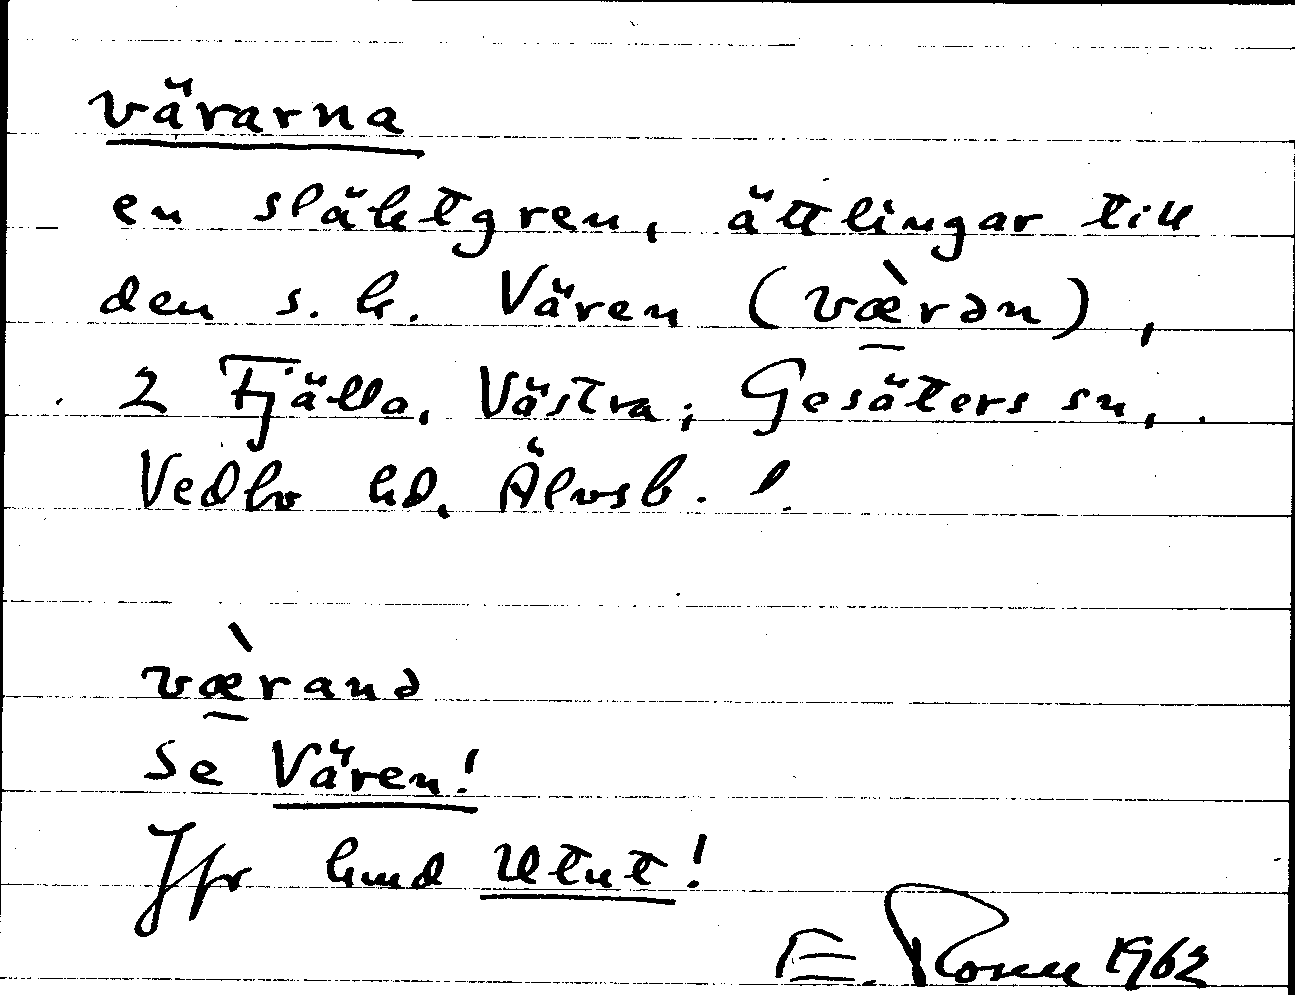 värarna
en släktgren, ättlingar till
den s. k. Vären (væ̀rən),
2 Fjälla, Västra, Gesäters sn,
Vedbo hd. Älvsb. l.
væ̀ranə
se Vären!
Jfr kmd Utnt!
E. Rosen 1962